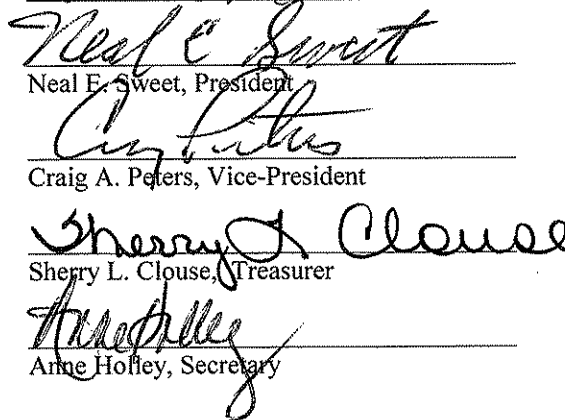 Neal E Sweet
Neal E. Sweet, President
Craig Peters
Craig A. Peters, Vice-President
Sherry L Clouse
Sherry L. Clouse, Treasurer
Anne Holley
Anne Holley, Secretary